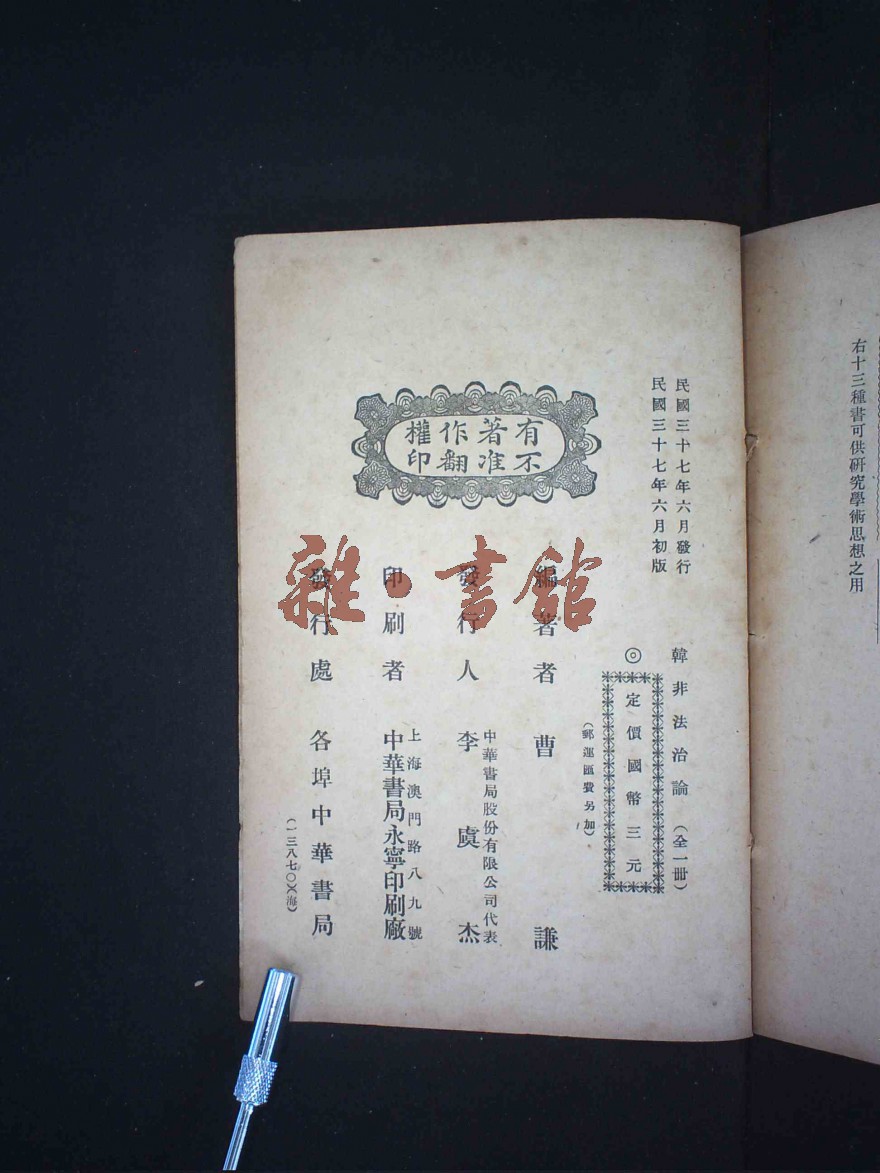 右十三種書可供研究學術思想之用
民國三十七年六月發行
民國三十七年六月初版
有著作權
不准翻印
韓非法治論（全一冊）
◎定價國幣三元
（郵運匯費另加）
編著者 曹謙
發行人 中華書局股份有限公司代表
李虞杰
印刷者 上海澳門路八九號
中華書局永寧印刷廠
發行處 各埠中華書局
（一三八七〇）（海）
雜·書館